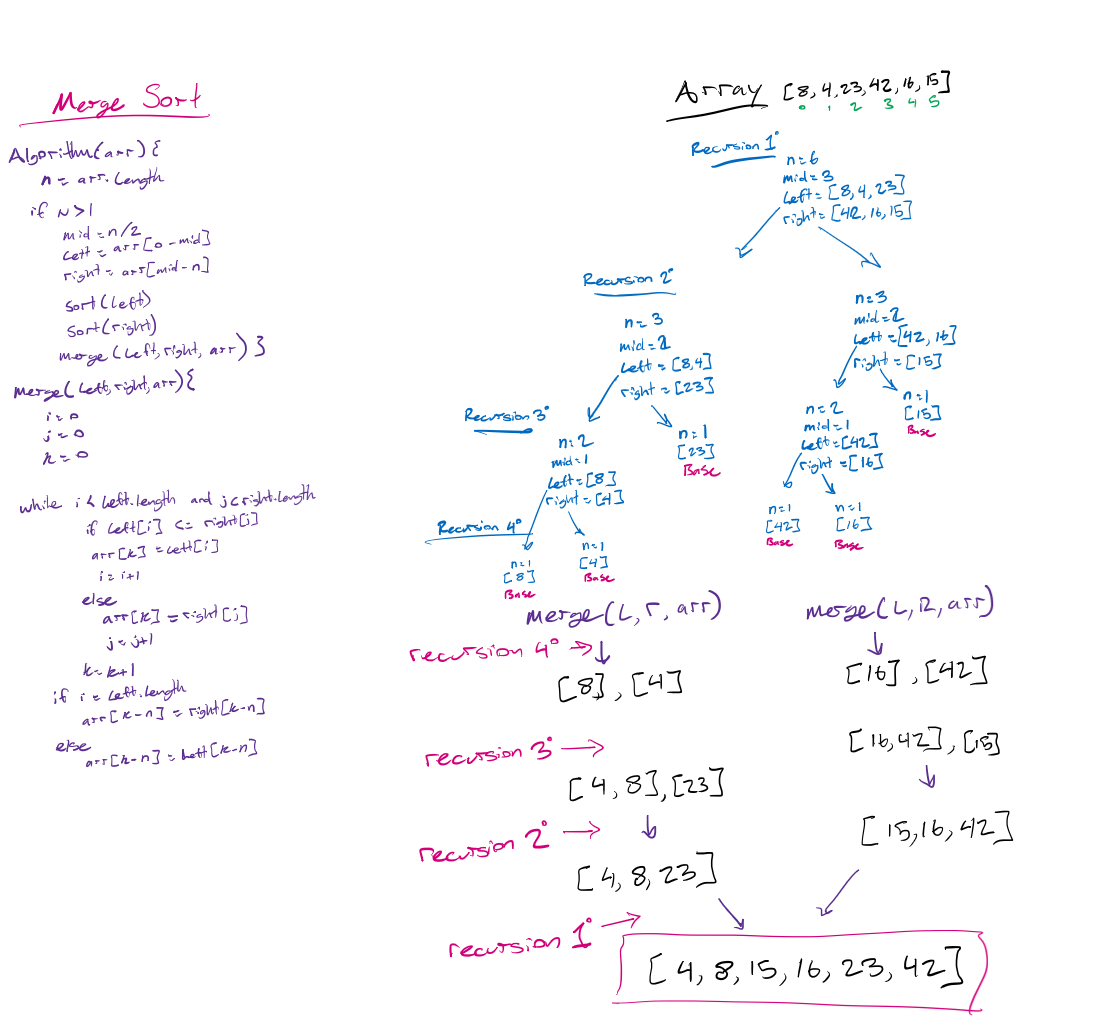 Merge Sort
Algorithm(arr){
n = arr.length
if N>1
mid = n/2
left = arr[0-mid]
right = arr[mid-n]
sort(left)
sort(right)
merge(left,right, arr) }
merge(left,right,arr){
i=0
j=0
k=0
while i< left.length and j<right.length
if left[i] <= right[j]
arr[k] = left[i]
i=i+1
else
arr[k] = right[j]
j=j+1
k=k+1
if i = left.length
arr[k-n] = right[k-n]
else
arr[k-n] = left[k-n]
Array [8, 4, 23, 42, 16, 15]
0 1 2 3 4 5
Recursion 1°
n=6
mid=3
left=[8,4,23]
right=[42,16,15]
Recursion 2°
n=3
mid=2
left=[8,4]
right=[23]
n=3
mid=2
left=[42,16]
right=[15]
Recursion 3°
n=2
mid=1
left=[8]
right=[4]
n=1
[23]
Base
n=2
mid=1
left=[42]
right=[16]
n=1
[15]
Base
Recursion 4°
n=1
[8]
Base
n=1
[4]
Base
n=1
[42]
Base
n=1
[16]
Base
merge(L,r,arr)
recursion 4°
[8], [4]
recursion 3°
[4, 8],[23]
recursion 2°
[4, 8, 23]
merge(L,R,arr)
[16], [42]
[16,42],[15]
[15,16,42]
recursion 1°
[4, 8, 15, 16, 23, 42]